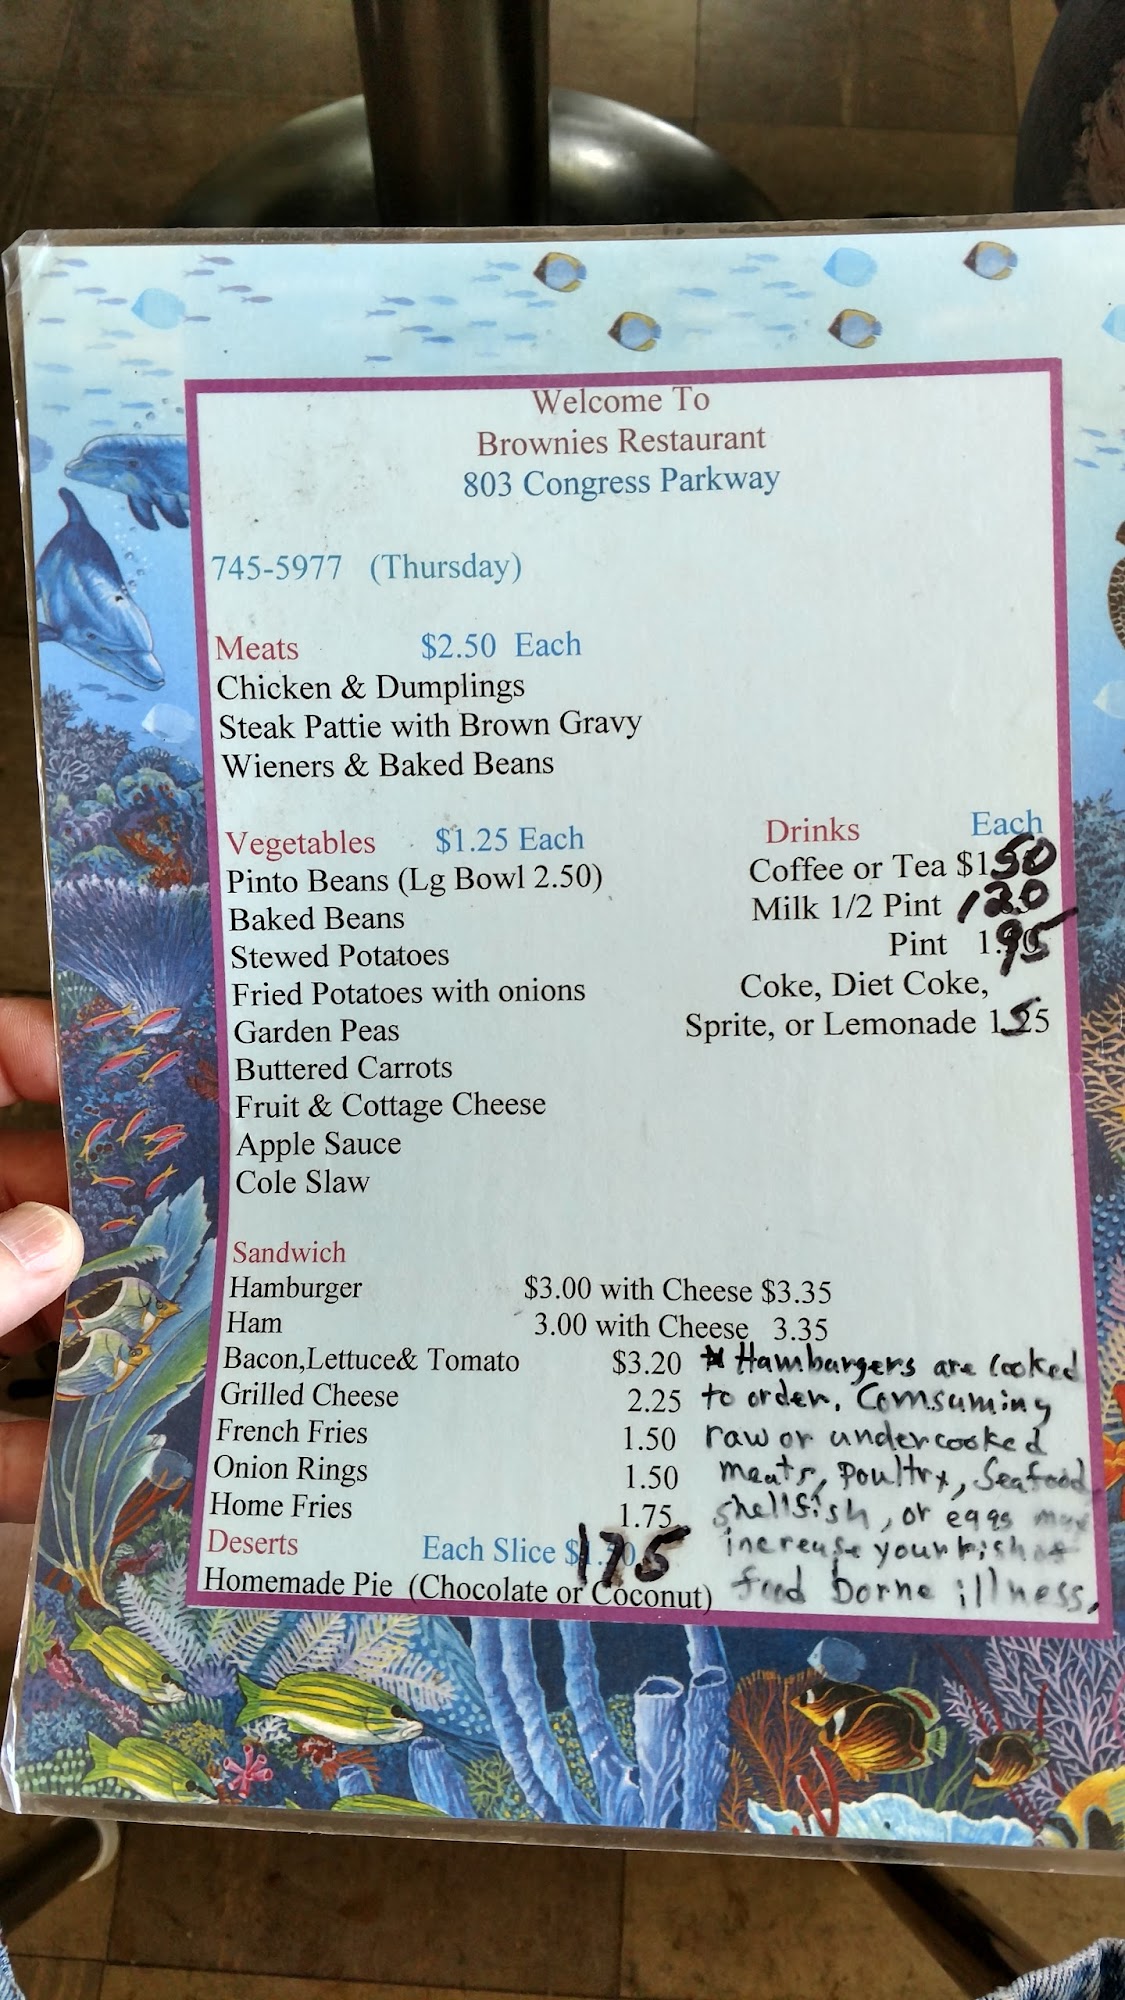 Welcome To
Brownies Restaurant
803 Congress Parkway
745-5977 (Thursday)
Meats $2.50 Each
Chicken & Dumplings
Steak Pattie with Brown Gravy
Wieners & Baked Beans
Vegetables $1.25 Each
Pinto Beans (Lg Bowl 2.50)
Baked Beans
Stewed Potatoes
Fried Potatoes with onions
Garden Peas
Buttered Carrots
Fruit & Cottage Cheese
Apple Sauce
Cole Slaw
Drinks Each
Coffee or Tea $1.50
Milk 1/2 Pint 120
Pint 1.95
Coke, Diet Coke,
Sprite, or Lemonade 1.55
Sandwich
Hamburger $3.00 with Cheese $3.35
Ham 3.00 with Cheese 3.35
Bacon,Lettuce& Tomato $3.20
Grilled Cheese 2.25
French Fries 1.50
Onion Rings 1.50
Home Fries 1.75
Deserts Each Slice $175
Homemade Pie (Chocolate or Coconut)
* Hamburgers are cooked
to order. Comsuming
raw or undercooked
meats, poultry, Seafood
shellfish, or eggs may
increase your risk of
food borne illness.